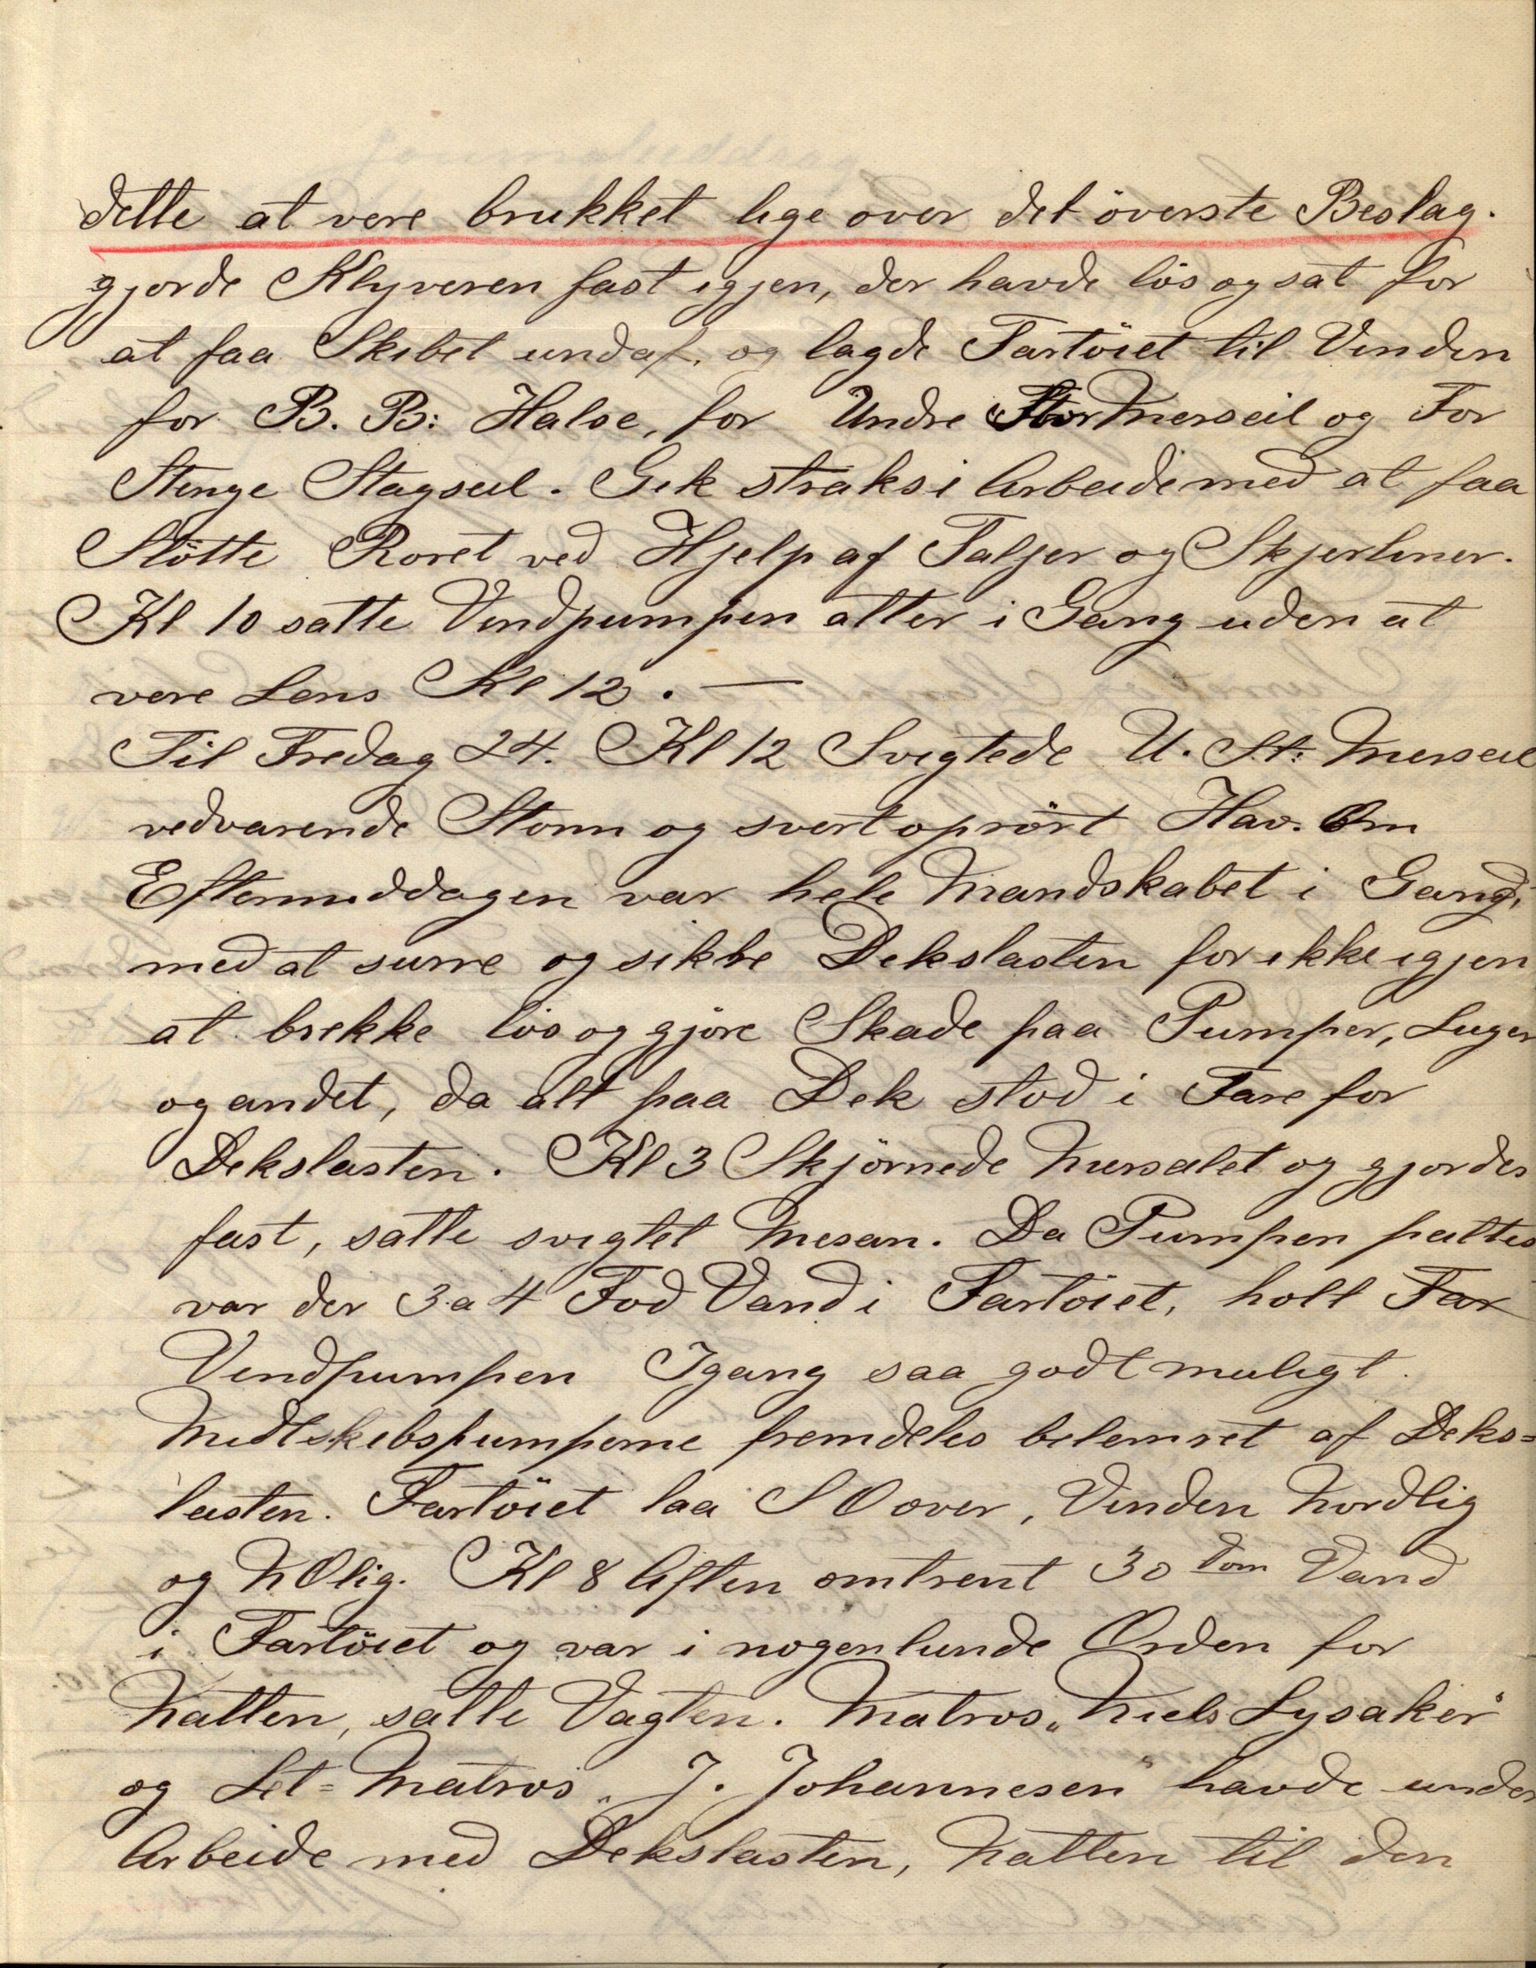 dette at vere brukket lige over det överste Beslag.
gjorde Klyveren fast igjen, der havde lös og sat for
at faa Skibet undaf, og lagde Fartöiet til Vinden
for B. B: Halse, for Undre Stor Merseil og For
Stenge Stagseil. Gik straks i Arbeide med at faa
Stötte Roret ved Hjelp af Taljer og Skjertiner.
Kl 10 satte Vindpumpen atter i Gang uden at
vere Lens Kl 12. —
Til Fredag 24. Kl 12 Svigtede U. St: Merseil
vedvarende Storm og svert oprört Hav. Om
Eftermiddagen var hele Mandskabet i Gang,
med at surre og sikre Dekslasten for ikke igjen
at brekke lös og gjöre Skade paa Pumper, Luger
og andet, da alt paa Dek stod i Fare for
Dekslasten. Kl 3 Skjörnede Merseilet og gjordes
fast, satte svigtet Mesan. Da Pumpen peiltes
var der 3 a 4 Fod Vand i Fartöiet, holt Far
Vindpumpen Igang saa godt muligt.
Midtskibspumperne fremdeles belemret af Deks=
lasten. Fartöiet laa S O over, Vinden Nordlig
og N Olig. Kl 8 Aften omtrent 30 Tom Vand
i Fartöiet og var i nogenlunde Orden for
Natten, satte Vagten. Matros „Niels Lysaker"
og Let=Matros „J. Johannesen" havde under
Arbeide med Dekslasten, Natten til den